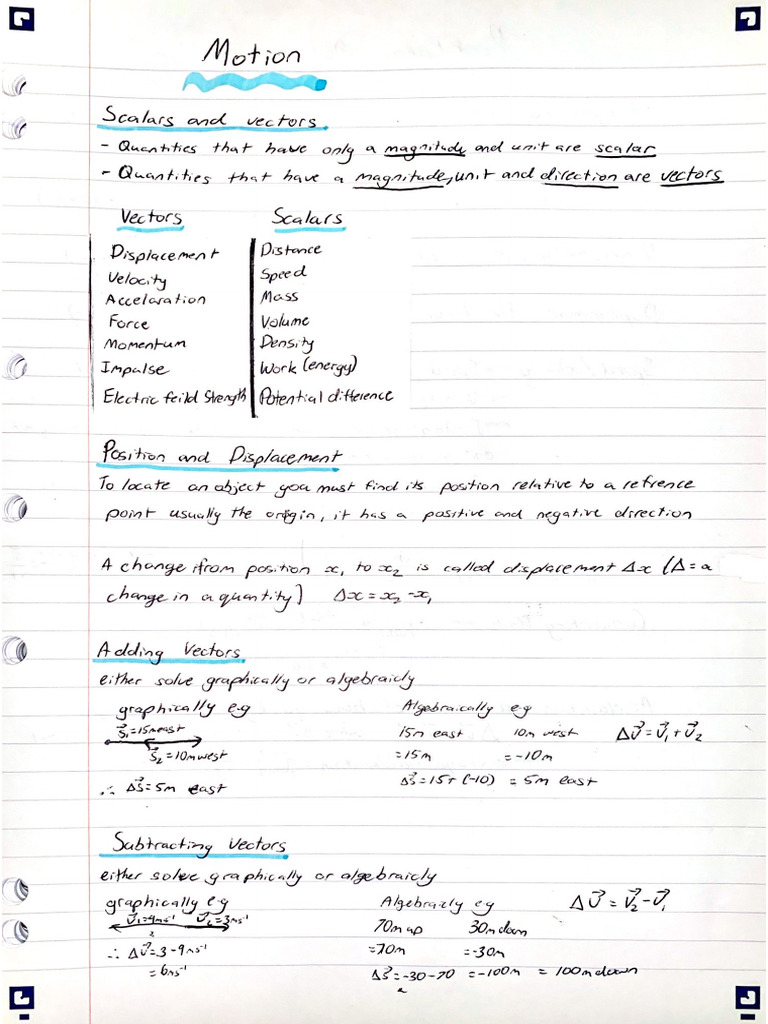 Motion
Scalars and vectors
- Quantities that have only a magnitude and unit are scalar
- Quantities that have a magnitude, unit and direction are vectors
Vectors Scalars
Displacement Distance
Velocity Speed
Accelaration Mass
Force Volume
Momentum Density
Impulse Work (energy)
Electric feild Strength Potential difference
Position and Displacement
To locate an object you must find its position relative to a refrence
point usually the origin, it has a positive and negative direction
A change from position x₁ to x₂ is called displacement Δx (Δ = a
change in a quantity) Δx = x₂ - x₁
Adding Vectors
either solve graphically or algebraicly
graphically e.g Algebraically e.g
S⃗₁ = 15m east 15m east 10m west ΔU⃗ = U⃗₁ + U⃗₂
S⃗₂ = 10m west = 15m = -10m
∴ ΔS⃗ = 5m east ΔS⃗ = 15 + (-10) = 5m east
Subtracting Vectors
either solve graphically or algebraicly
graphically eg Algebraicly eg ΔU⃗ = U⃗₂ - U⃗₁
U⃗₁ = 9ms⁻¹ U⃗₂ = 3ms⁻¹ 70m up 30m down
∴ ΔU⃗ = 3 - 9ms⁻¹ = 70m = -30m
= 6ms⁻¹ ΔS⃗ = -30 - 70 = -100m = 100m down